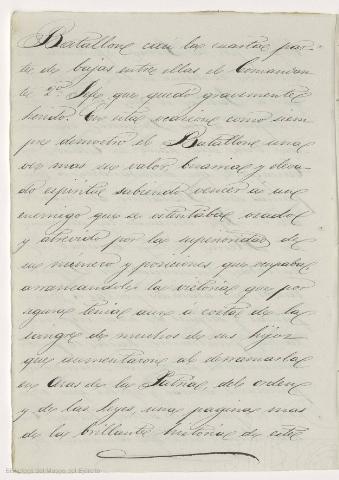 Batallon casi la cuarta par-
te de bajas entre ellas el Comandan
te 2º Jefe que quedó gravemente
herido. En esta ocasion como siem
pre demostró el Batallon una
vez mas su valor, bizarria y eleva-
do espiritu sabiendo vencer a un
enemigo que se ostentaba osado
y atrevido por la superioridad de
su número y posiciones que ocupaba
arrancandole la victoria que por
segura tenia aun a costa de la
sangre de muchos de sus hijos
que aumentaron al derramarla
en Aras de la Patria, del orden
y de las leyes, una pagina mas
de la brillante historia de este
Biblioteca del Museo del Ejército